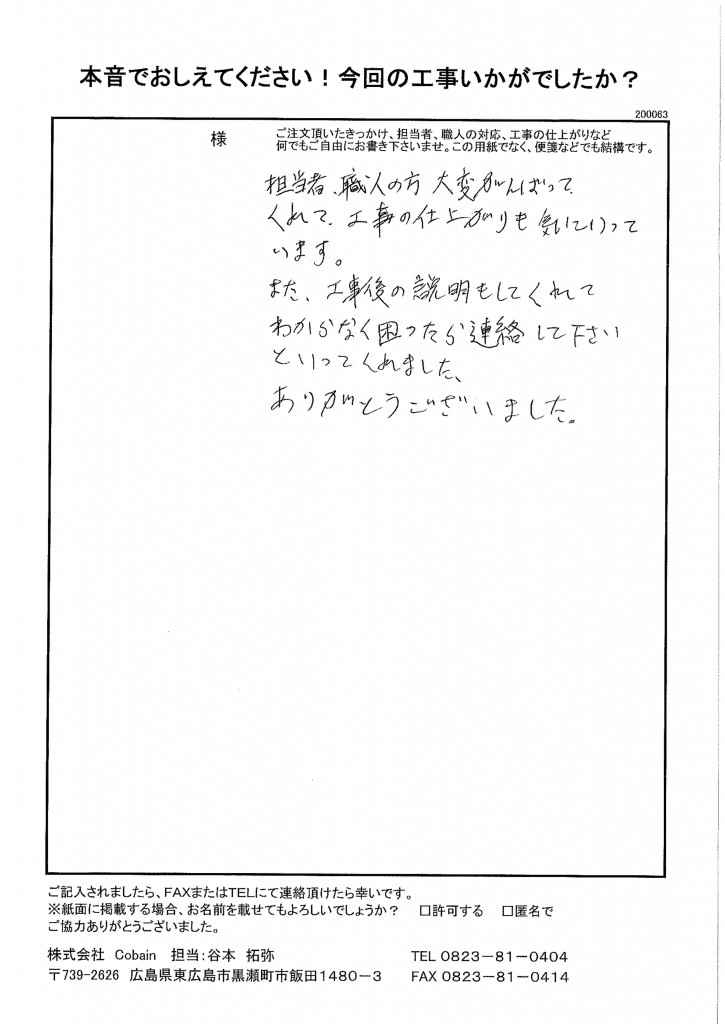 本音でおしえてください!今回の工事いかがでしたか?
200063
様
ご注文頂いたきっかけ、担当者、職人の対応、工事の仕上がりなど
何でもご自由にお書き下さいませ。この用紙でなく、便箋などでも結構です。
担当者、職人の方 大変がんばって
くれて、工事の仕上がりも気にいって
います。
また、工事後の説明もしてくれて
わからなく困ったら連絡して下さい
といってくれました、
ありがとうございました。
ご記入されましたら、FAXまたはTELにて連絡頂けたら幸いです。
※紙面に掲載する場合、お名前を載せてもよろしいでしょうか? □許可する □匿名で
ご協力ありがとうございました。
株式会社 Cobain 担当:谷本 拓弥
TEL 0823-81-0404
〒739-2626 広島県東広島市黒瀬町市飯田1480-3
FAX 0823-81-0414